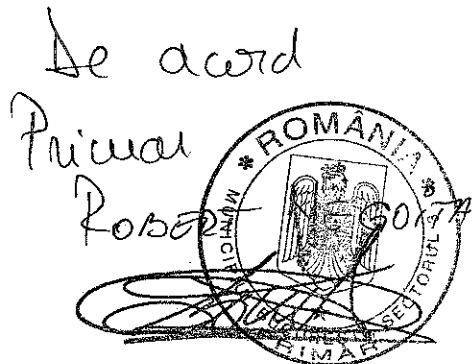 De acord
Primar
ROBERT
* ROMÂNIA *
SECTORUL
PRIMAR